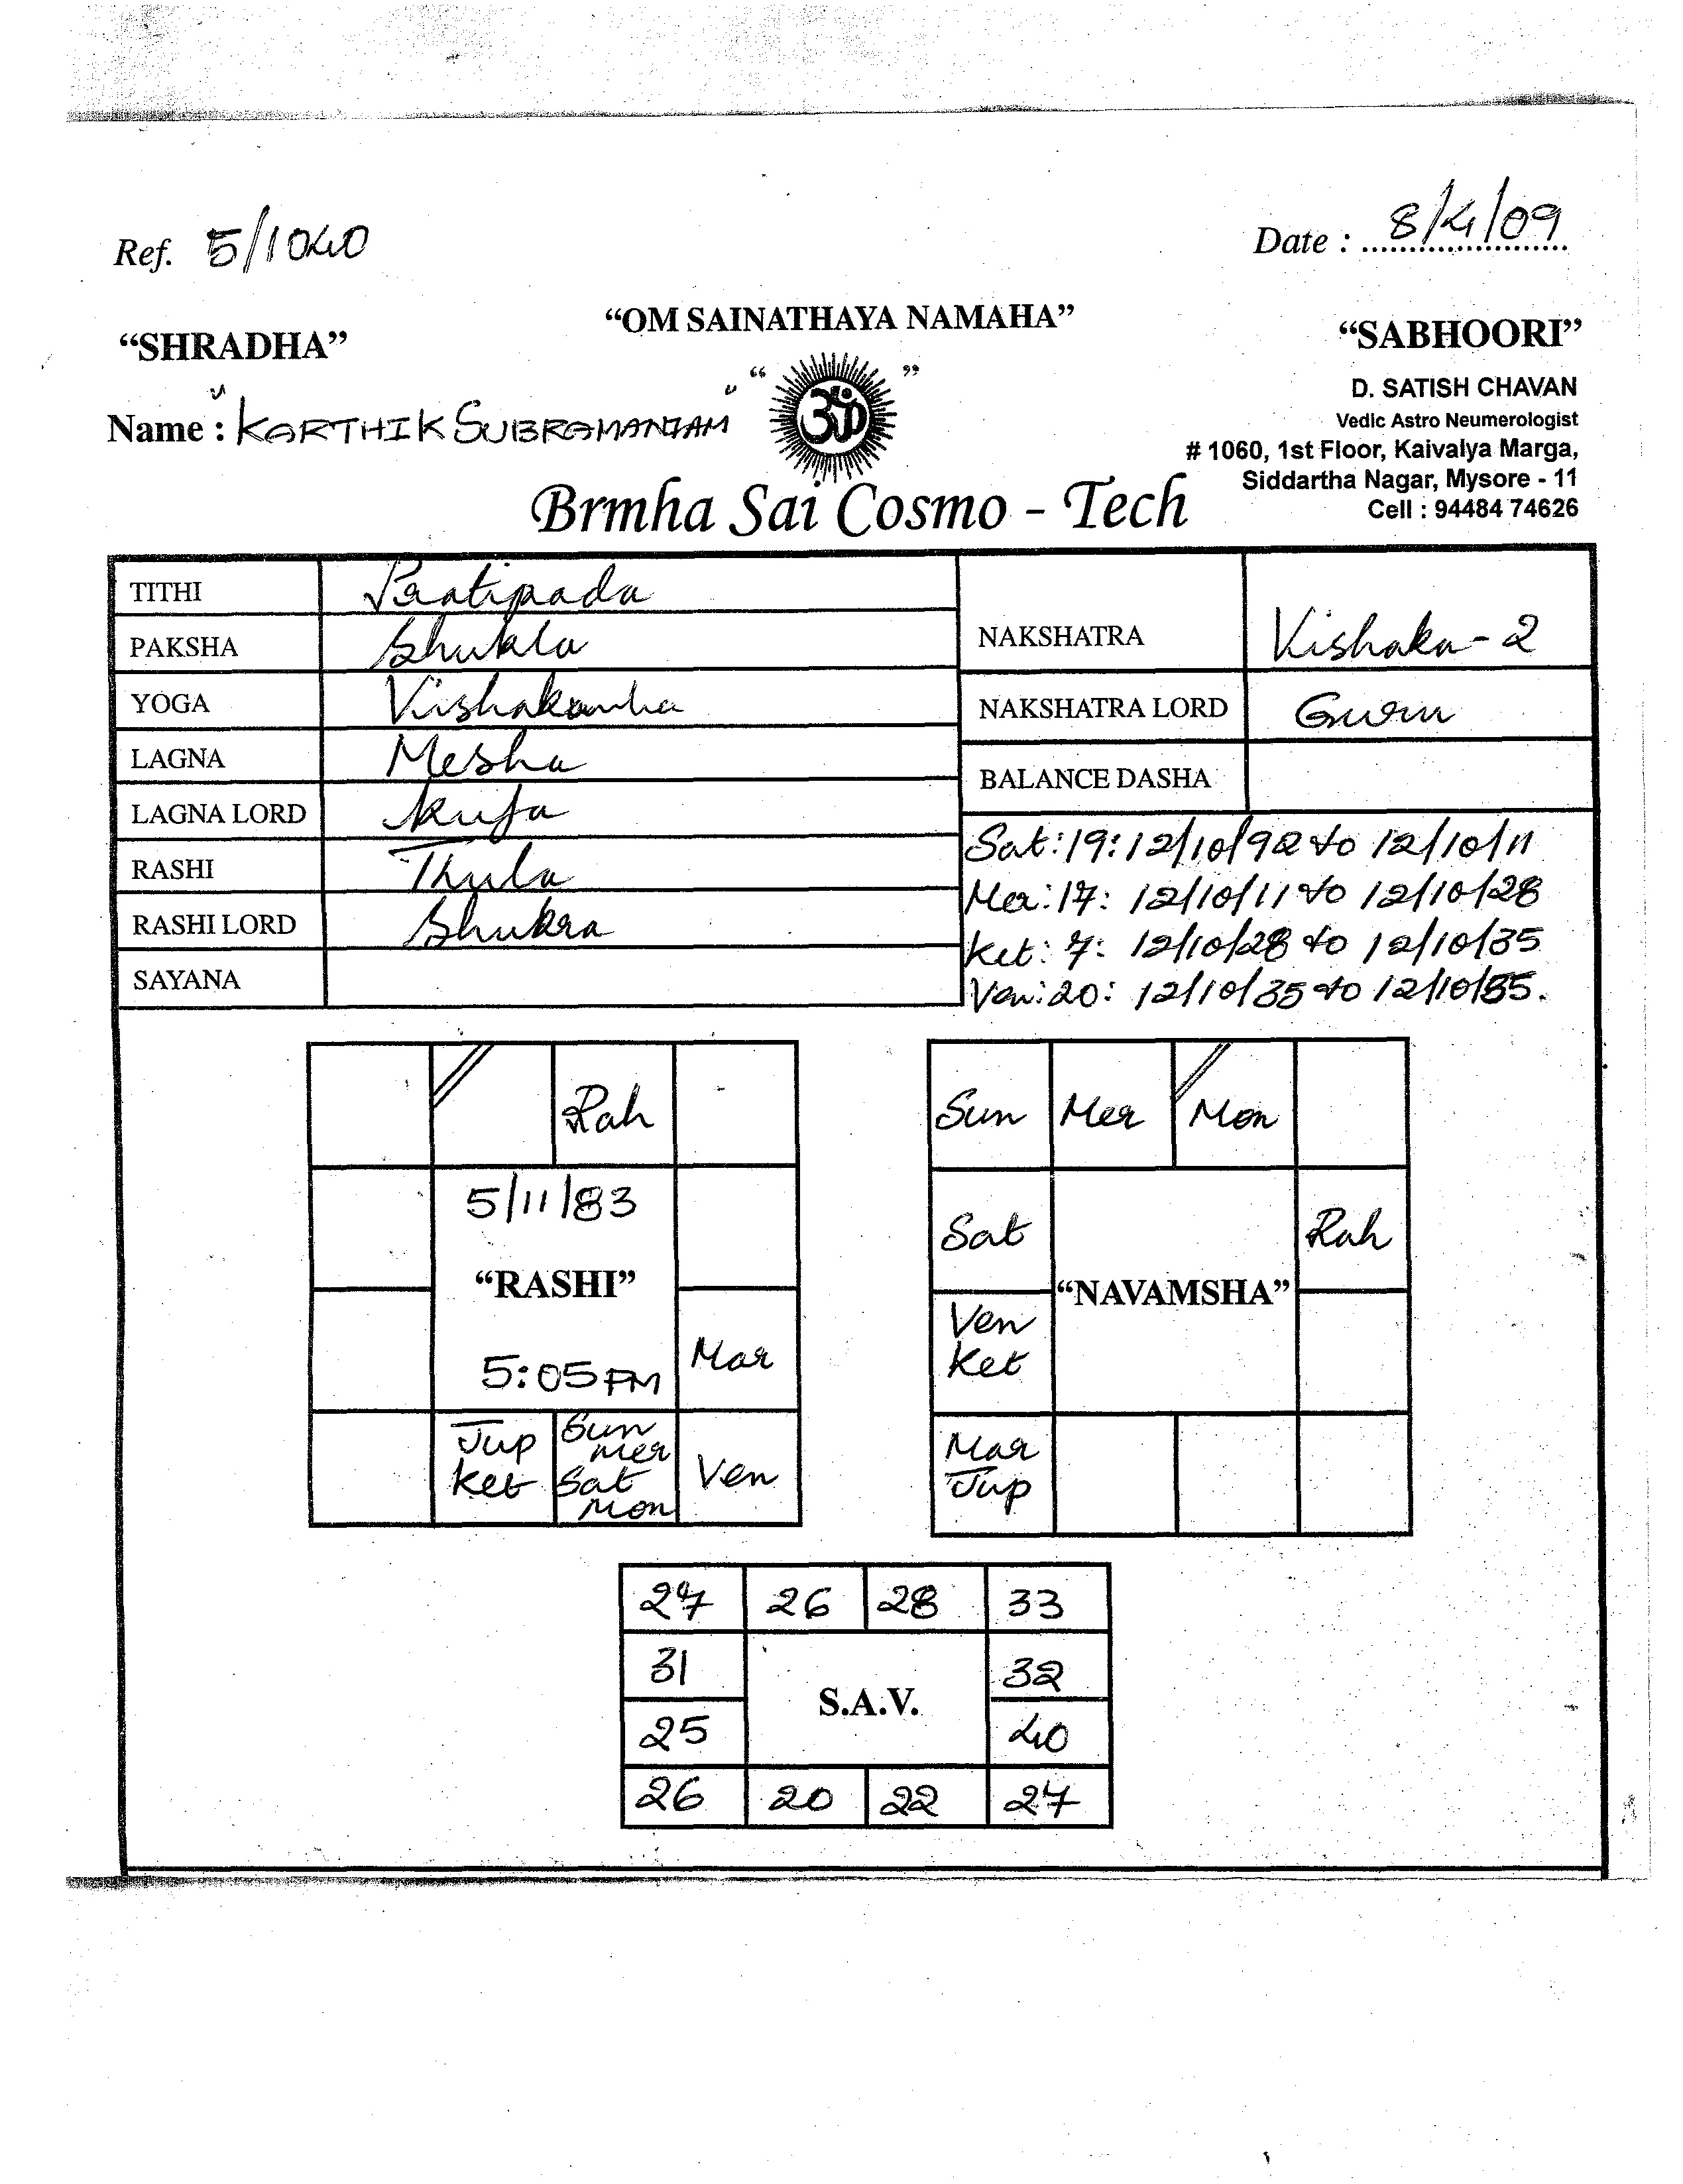 Ref. 5/1040
Date : 8/4/09
"SHRADHA"
"OM SAINATHAYA NAMAHA"
"SABHOORI"
Name : "KARTHIK SUBRAMANIAM"
" ॐ "
D. SATISH CHAVAN
Vedic Astro Neumerologist
# 1060, 1st Floor, Kaivalya Marga,
Siddartha Nagar, Mysore - 11
Cell : 94484 74626
Brmha Sai Cosmo - Tech
TITHI Pratipada
PAKSHA Shukla
YOGA Vishakamba
LAGNA Mesha
LAGNA LORD Kuja
RASHI Thula
RASHI LORD Shukra
SAYANA
NAKSHATRA Vishaka - 2
NAKSHATRA LORD Guru
BALANCE DASHA
Sat: 19: 12/10/92 to 12/10/11
Mer: 17: 12/10/11 to 12/10/28
Ket: 7: 12/10/28 to 12/10/35
Ven: 20: 12/10/35 to 12/10/55.
Rah
5/11/83
"RASHI"
5:05 PM
Mar
Jup
Ket
Sun
Mer
Sat
Mon
Ven
Sun Mer Mon
Sat Rah
"NAVAMSHA"
Ven
Ket
Mar
Jup
27 26 28 33
31 32
S.A.V.
25 40
26 20 22 27